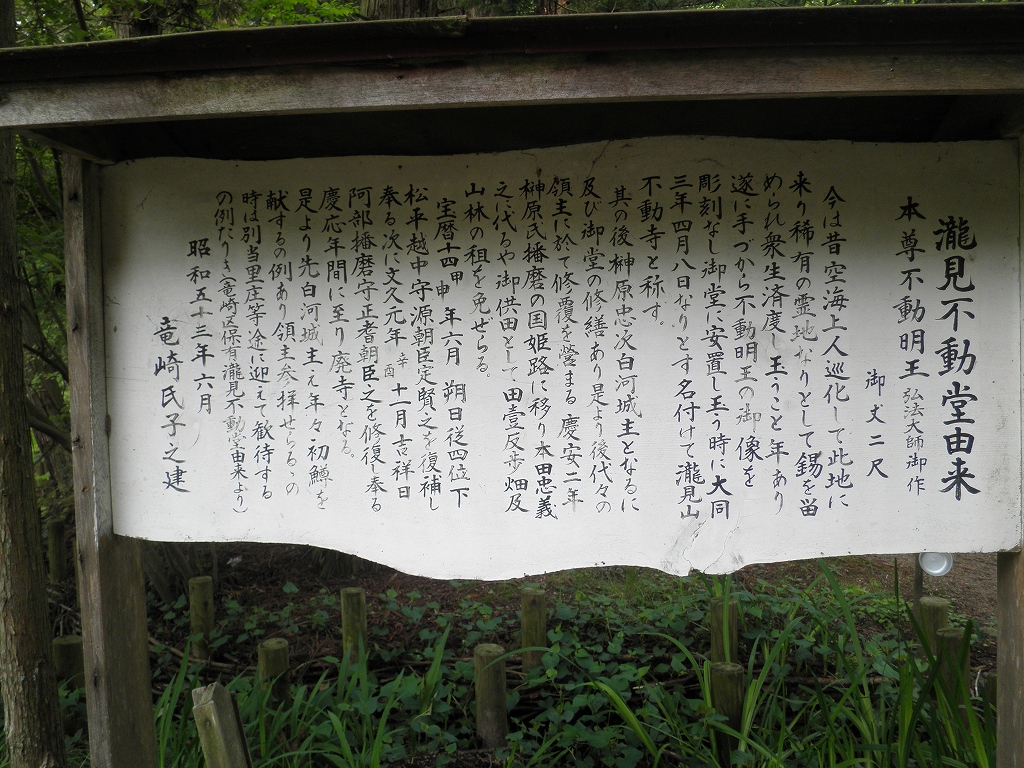 瀧見不動堂由来
本尊不動明王 弘法大師御作
御丈二尺
今は昔空海上人巡化して此地に
来り稀有の霊地なりとして錫を留
められ衆生済度し玉うこと年あり
遂に手づから不動明王の御像を
彫刻なし御堂に安置し玉う時に大同
三年四月八日なりとす名付けて瀧見山
不動寺と称す。
其の後榊原忠次白河城主となるに
及び御堂の修繕あり是より後代々の
領主に於て修覆を営まる慶安二年
榊原氏播磨の国姫路に移り本田忠義
之に代るや御供田として田壹反歩畑及
山林の租を免せらる。
宝暦十四甲申年六月朔日従四位下
松平越中守源朝臣定賢之を復補し
奉る次に文久元年辛酉十一月吉祥日
阿部播磨守正耆朝臣之を修復し奉る
慶応年間に至り廃寺となる。
是より先白河城主え年々初鱒を
献するの例あり領主参拝せらるゝの
時は別当里庄等途に迎えて歓待する
の例たりき(竜崎区保有瀧見不動堂由来より)
昭和五十三年六月
竜崎氏子之建